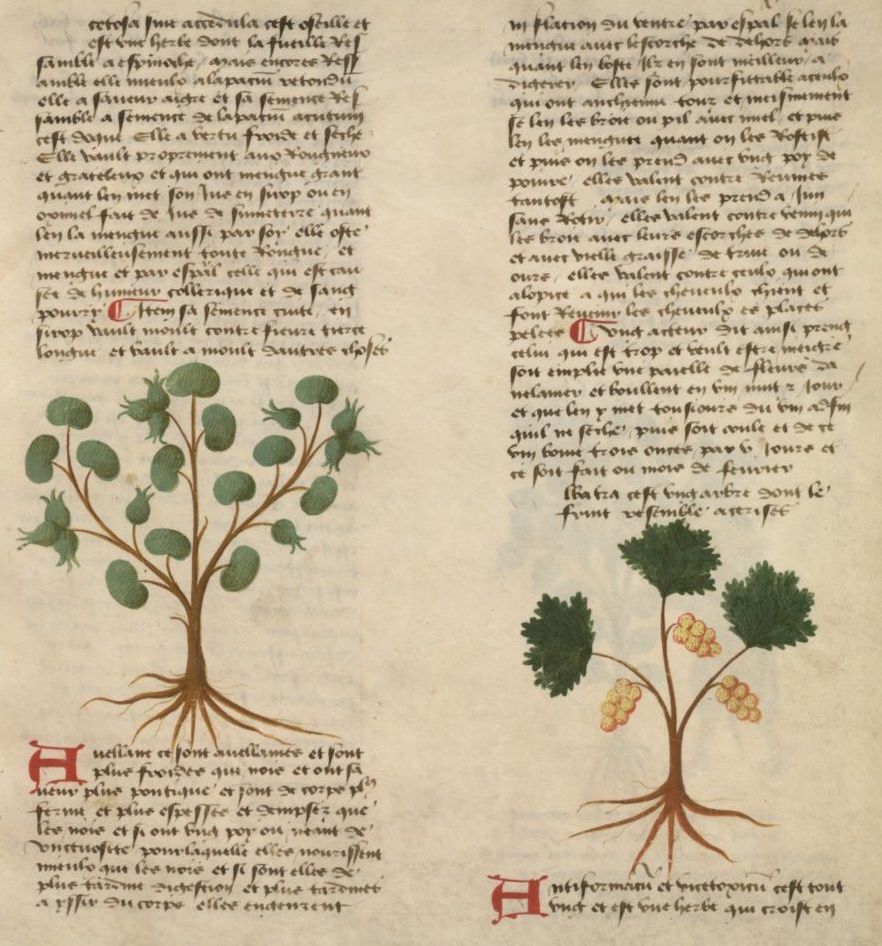 cetosa sive accedula cest oseille et
est une herbe dont la fueille res
samble a espinoche, mais encores ress
amble elle mieulx a lapacin rotondu
elle a saveur aigre et sa semence res
samble a semence de lapaciu acutum
cest doque Elle a vertu froide et seche
Elle vault proprement aux rongneux
et grateleux et qui ont mengue grant
quant len met son jus en sirop ou en
oximel fait de jus de fumeterre quant
len la mengue aussi par soy elle oste
merveilleusement toute rongne, et
mengue et par espal celle qui est cau
see de humeur collerique et de sang
pourry Item sa semence cuite, en
sirop vault moult contre fievre tierce
longue et vault a moult dautres choses
Avellane ce sont avellaines et sont
plus froides que nois et ont sa
veur plus pontique et sont de corps pl9
ferme et plus espesses et dempsez que
les nois et si ont ung poy ou neant de
unctuosite pour laquelle elles nourissent
mieulx que les nois et si sont elles de
plus tardive digestion et plus tardives
a yssir du corps elles engenrent
inflacion du ventre par espal se len la
mengue avec lescorche de dehors mais
quant len loste ilz en sont meilleur a
digerer Elles sont pourfittable a ceulx
qui ont anchienne toux et meismement
se len les broie ou pil avec miel et puis
len les mengue quant on les rostist
et puis on les prend avec ung poy de
poivre elles valent contre reumes
tantost mais len les prend a jun
sans rotir, elles valent contre venin qui
les broie avec leurs escorches de dehors
et avec vielle graisse de truie ou de
ours, elles valent contre ceulx qui ont
alopice a qui les cheveulx chient et
font revenir les cheveulx es places
pelees Ung acteur dit ainsi preng
celui qui est trop et veult estre meigre
soit emplie une paielle de fleurs da
velanier et boullent en vin nuit et jour
et que len y met tousjours du vin adfin
quil ne seche, puis soit coule et de ce
vin boive trois onces par v. jours et
ce soit fait ou mois de fevrier
lbatra cest ung arbre dont le
fruit resemble a cerises
Antifarmacu et vicetoxicu cest tout
ung et est une herbe qui croist en